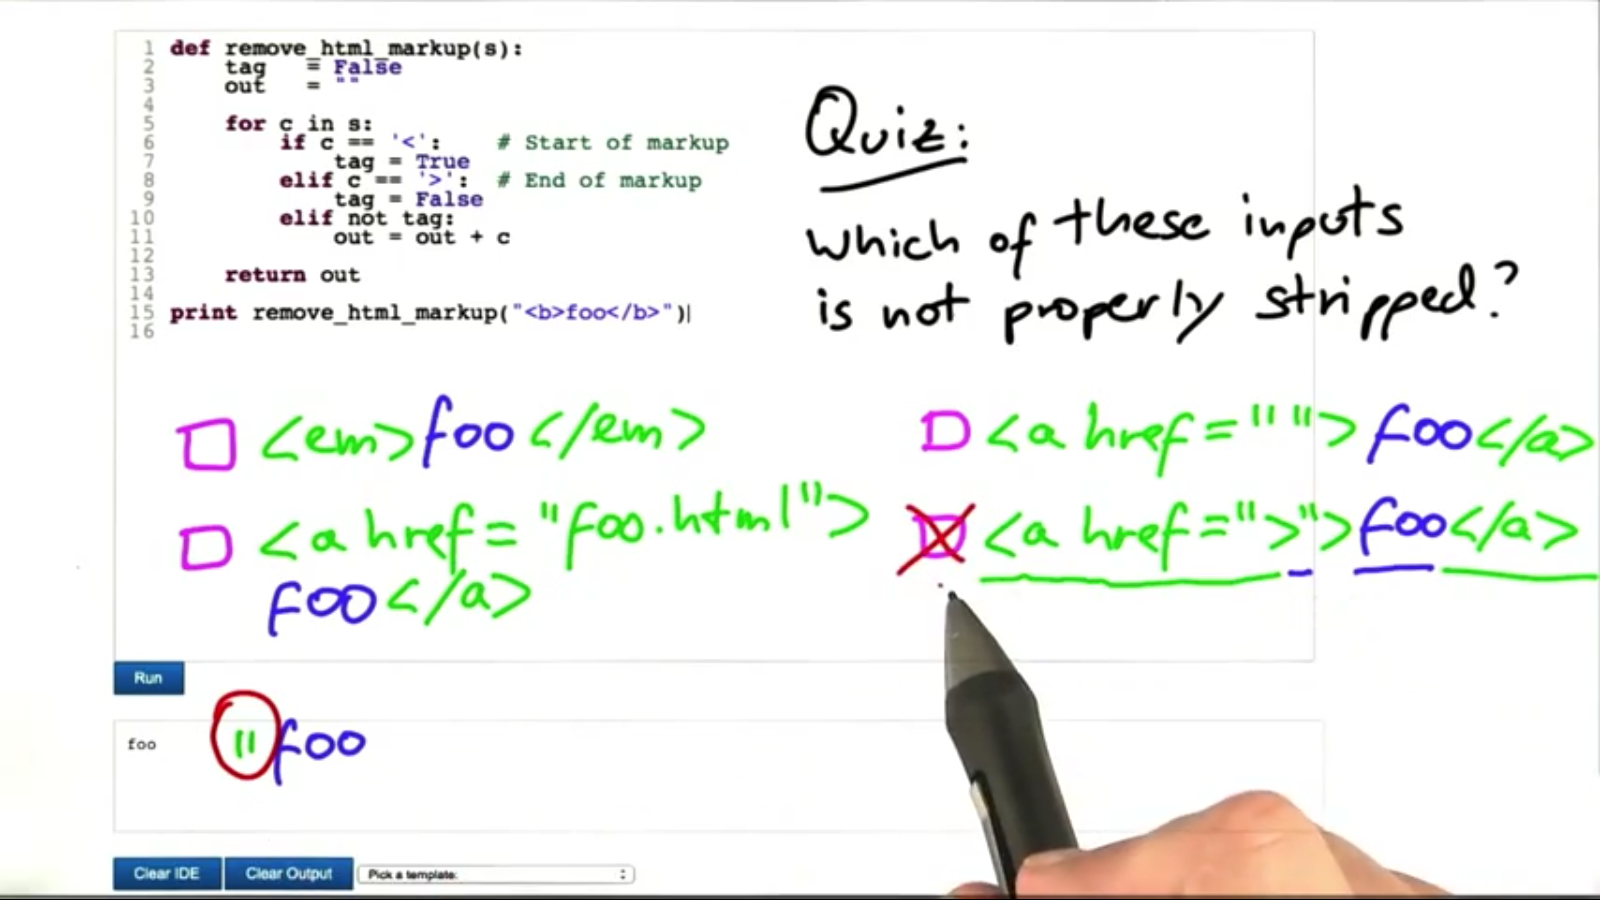 1 def remove_html_markup(s):
2     tag   = False
3     out   = ""
4
5     for c in s:
6         if c == '<':    # Start of markup
7             tag = True
8         elif c == '>':  # End of markup
9             tag = False
10         elif not tag:
11             out = out + c
12
13     return out
14
15 print remove_html_markup("<b>foo</b>")
16
Quiz:
Which of these inputs
is not properly stripped?
<em>foo</em>
<a href="">foo</a>
<a href="foo.html">
foo</a>
<a href=">">foo</a>
Run
foo
"foo
Clear IDE
Clear Output
Pick a template: